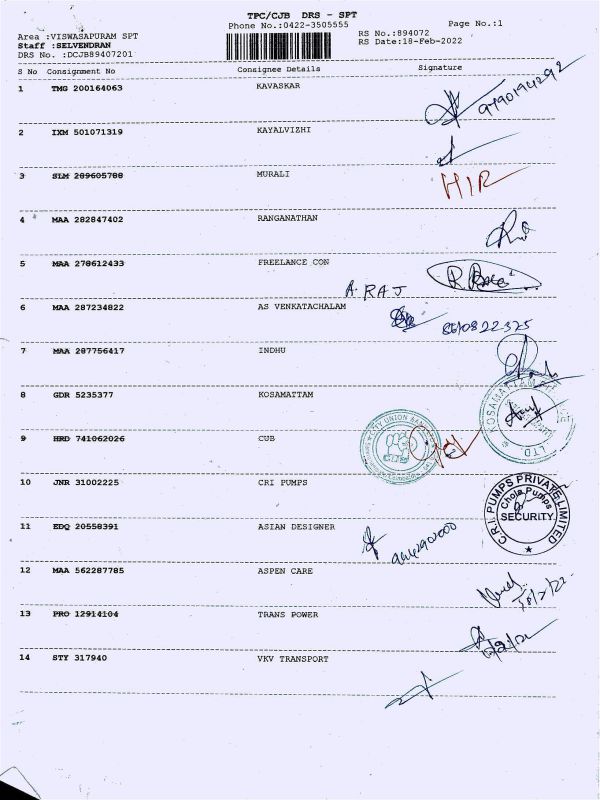 TPC/CJB DRS - SPT
Phone No.:0422-3505555
Page No.:1
Area :VISWASAPURAM SPT
RS No.:894072
Staff :SELVENDRAN
RS Date:18-Feb-2022
DRS No. :DCJB89407201
S No Consignment No Consignee Details Signature
1 TMG 200164063 KAVASKAR
2 IXM 501071319 KAYALVIZHI
3 SLM 289605788 MURALI
HIR
4 MAA 282847402 RANGANATHAN
5 MAA 278612433 FREELANCE CON
A. RAJ
6 MAA 287234822 AS VENKATACHALAM
7 MAA 287756417 INDHU
8 GDR 5235377 KOSAMATTAM
KOSAMATTAM
LTD
9 HRD 741062026 CUB
CITY UNION BANK
10 JNR 31002225 CRI PUMPS
C.R.I. PUMPS PRIVATE LIMITED
Chola Pumps
SECURITY
11 EDQ 20558391 ASIAN DESIGNER
12 MAA 562287785 ASPEN CARE
13 PRO 12914104 TRANS POWER
14 STY 317940 VKV TRANSPORT